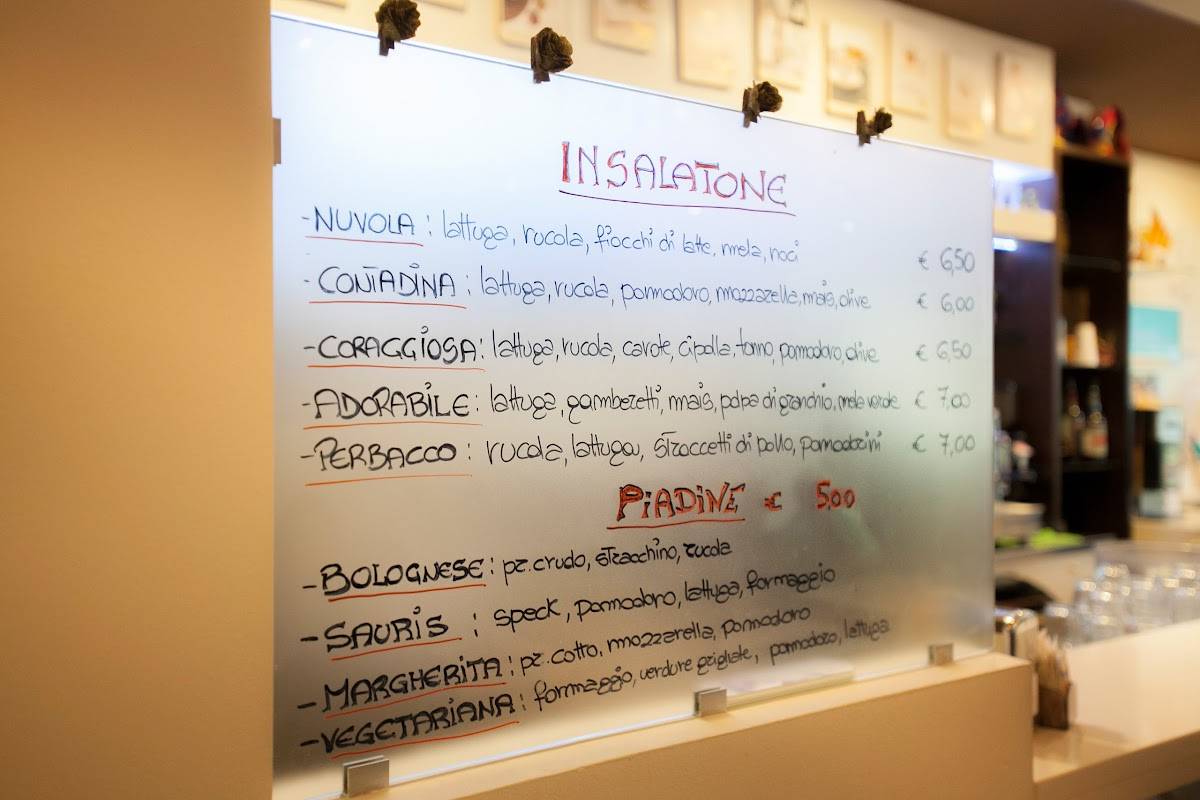 INSALATONE
-NUVOLA : lattuga, rucola, fiocchi di latte, mela, noci € 6,50
- CONTADINA : lattuga, rucola, pomodoro, mozzarella, mais, olive € 6,00
-CORAGGIOSA: lattuga, rucola, carote, cipolla, tonno, pomodoro, olive € 6,50
-ADORABILE: lattuga, gamberetti, mais, polpa di granchio, mela verde € 7,00
-PERBACCO: rucola, lattuga, straccetti di pollo, pomodorini € 7,00
PiADiNE € 5,00
-BOLOGNESE: pr. crudo, stracchino, rucola
-SAURIS : speck, pomodoro, lattuga, formaggio
-MARGHERITA: pr. cotto, mozzarella, pomodoro
-VEGETARIANA: formaggio, verdure grigliate, pomodoro, lattuga